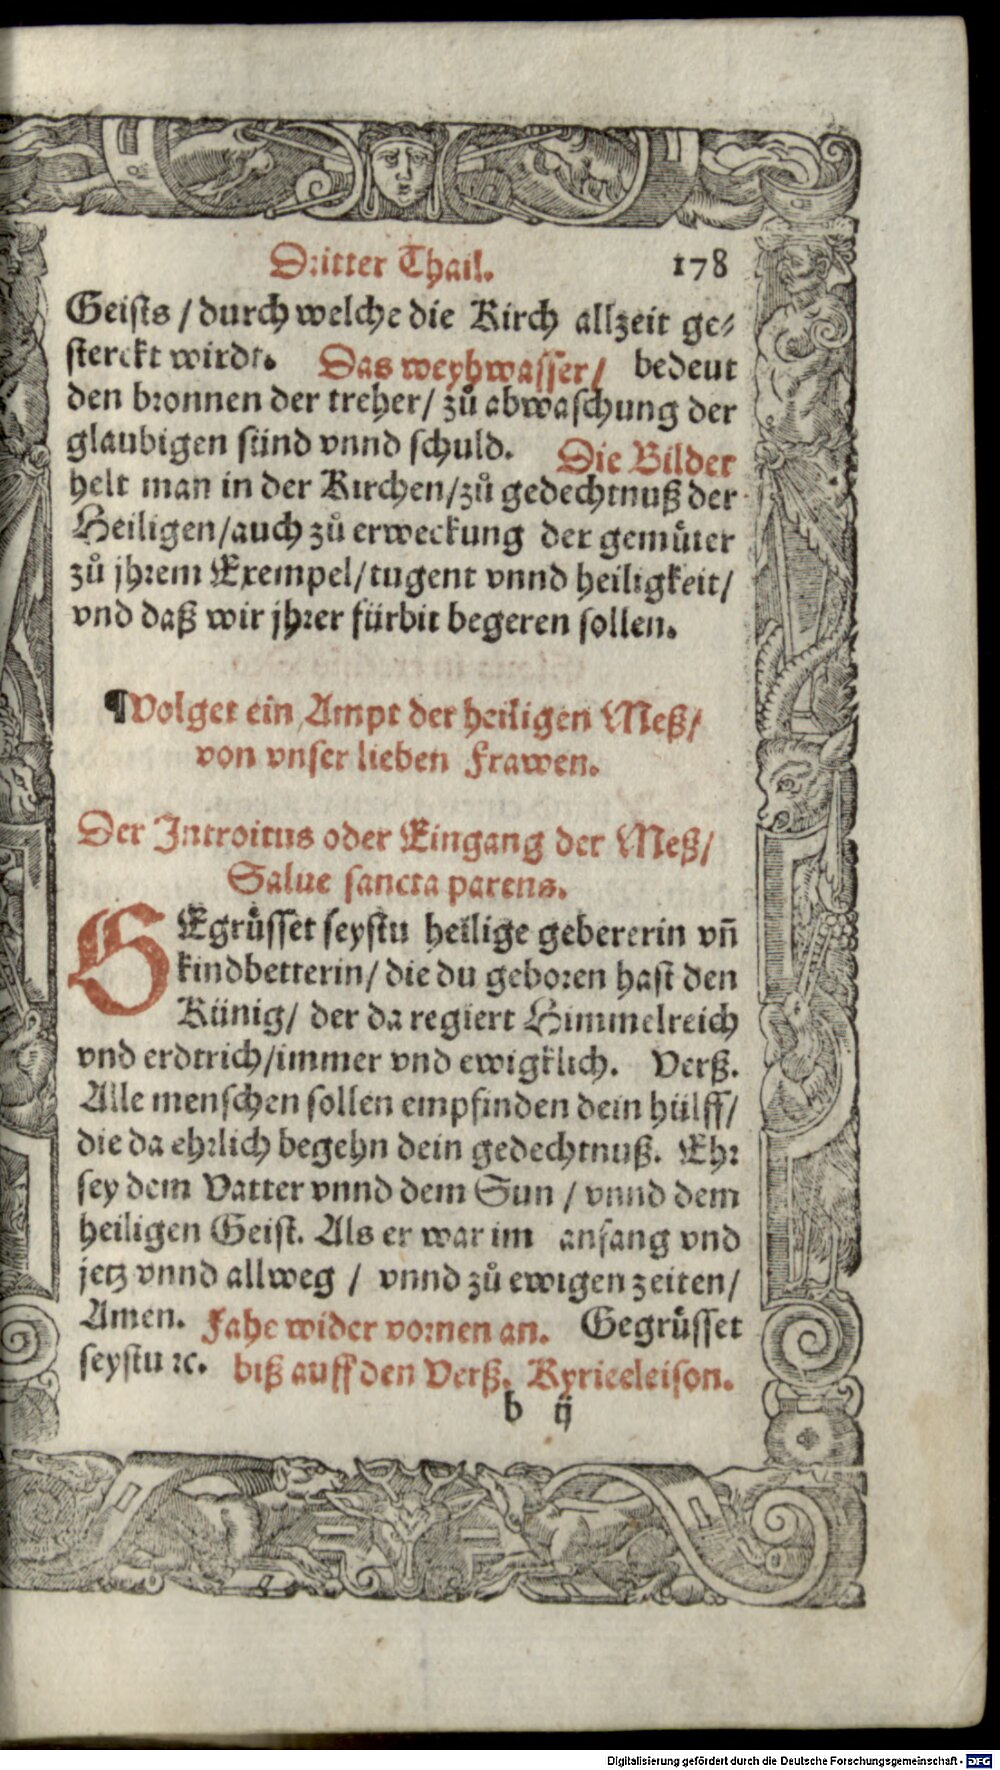 Dritter Thail. 178
Geists / durch welche die Kirch allzeit ge⸗
sterckt wirdt. Das weyhwasser / bedeut
den bronnen der treher / zů abwaschung der
glaubigen sünd vnnd schuld. Die Bilder
helt man in der Kirchen / zů gedechtnuß der
Heiligen / auch zů erweckung der gemůter
zů jhrem Exempel / tugent vnnd heiligkeit /
vnd daß wir jhrer fürbit begeren sollen.
¶Volget ein Ampt der heiligen Meß /
von vnser lieben Frawen.
Der Introitus oder Eingang der Meß /
Salue sancta parens.
GEgrůsset seystu heilige gebererin vñ
kindbetterin / die du geboren hast den
Künig / der da regiert Himmelreich
vnd erdtrich / immer vnd ewigklich. Verß.
Alle menschen sollen empfinden dein hülff /
die da ehrlich begehn dein gedechtnuß. Ehr
sey dem Vatter vnnd dem Sun / vnnd dem
heiligen Geist. Als er war im anfang vnd
jetz vnnd allweg / vnnd zů ewigen zeiten /
Amen. Fahe wider vornen an. Gegrůsset
seystu ꝛc. biß auff den Verß. Kyrieeleison.
b ij
Digitalisierung gefördert durch die Deutsche Forschungsgemeinschaft - DFG